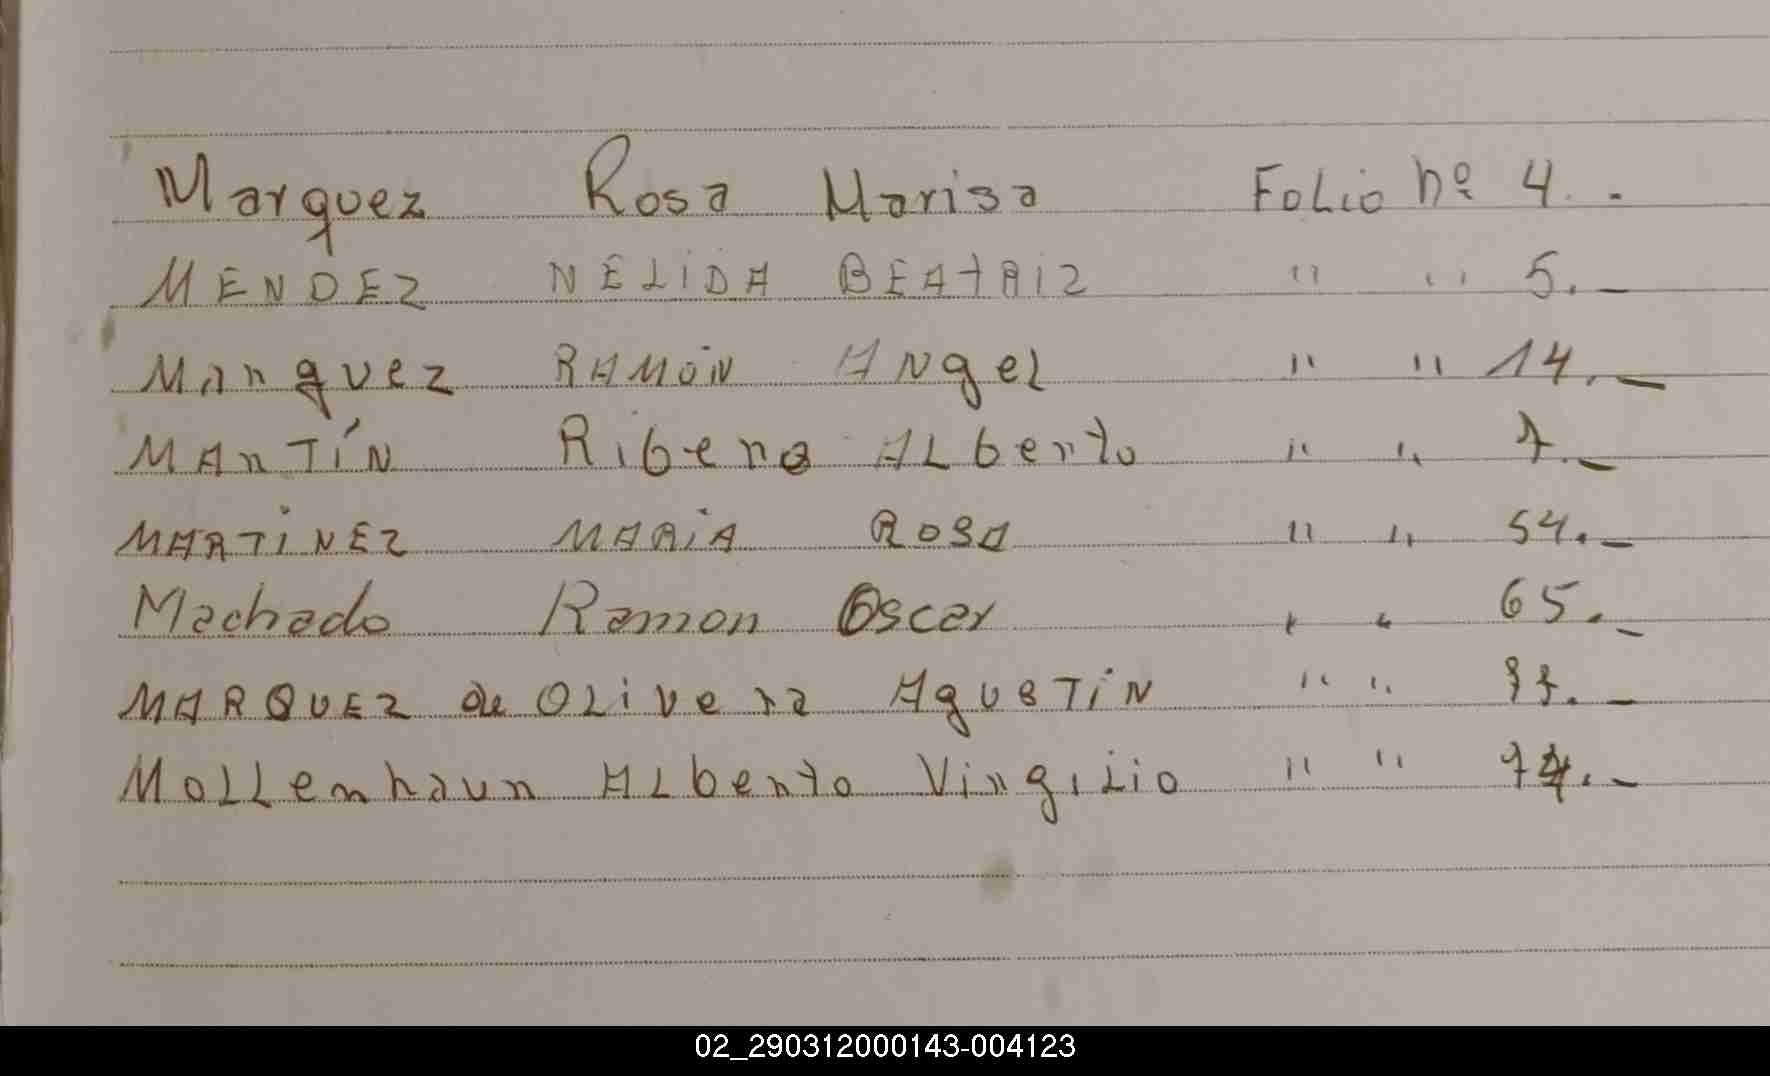 Marquez Rosa Marisa Folio nº 4.-
MENDEZ NÉLIDA BEATRIZ " " 5.-
Marquez RAMÓN ANgel " " 14.-
MArTÍN Ribero ALberto " " 7.-
MARTINEZ MARIA ROSA " " 54.-
Machado Ramon Oscar " " 65.-
MARQUEZ de OLivera AgusTíN " "
MoLLenhaur ALberto VirgiLio " " 74.-
02_290312000143-004123